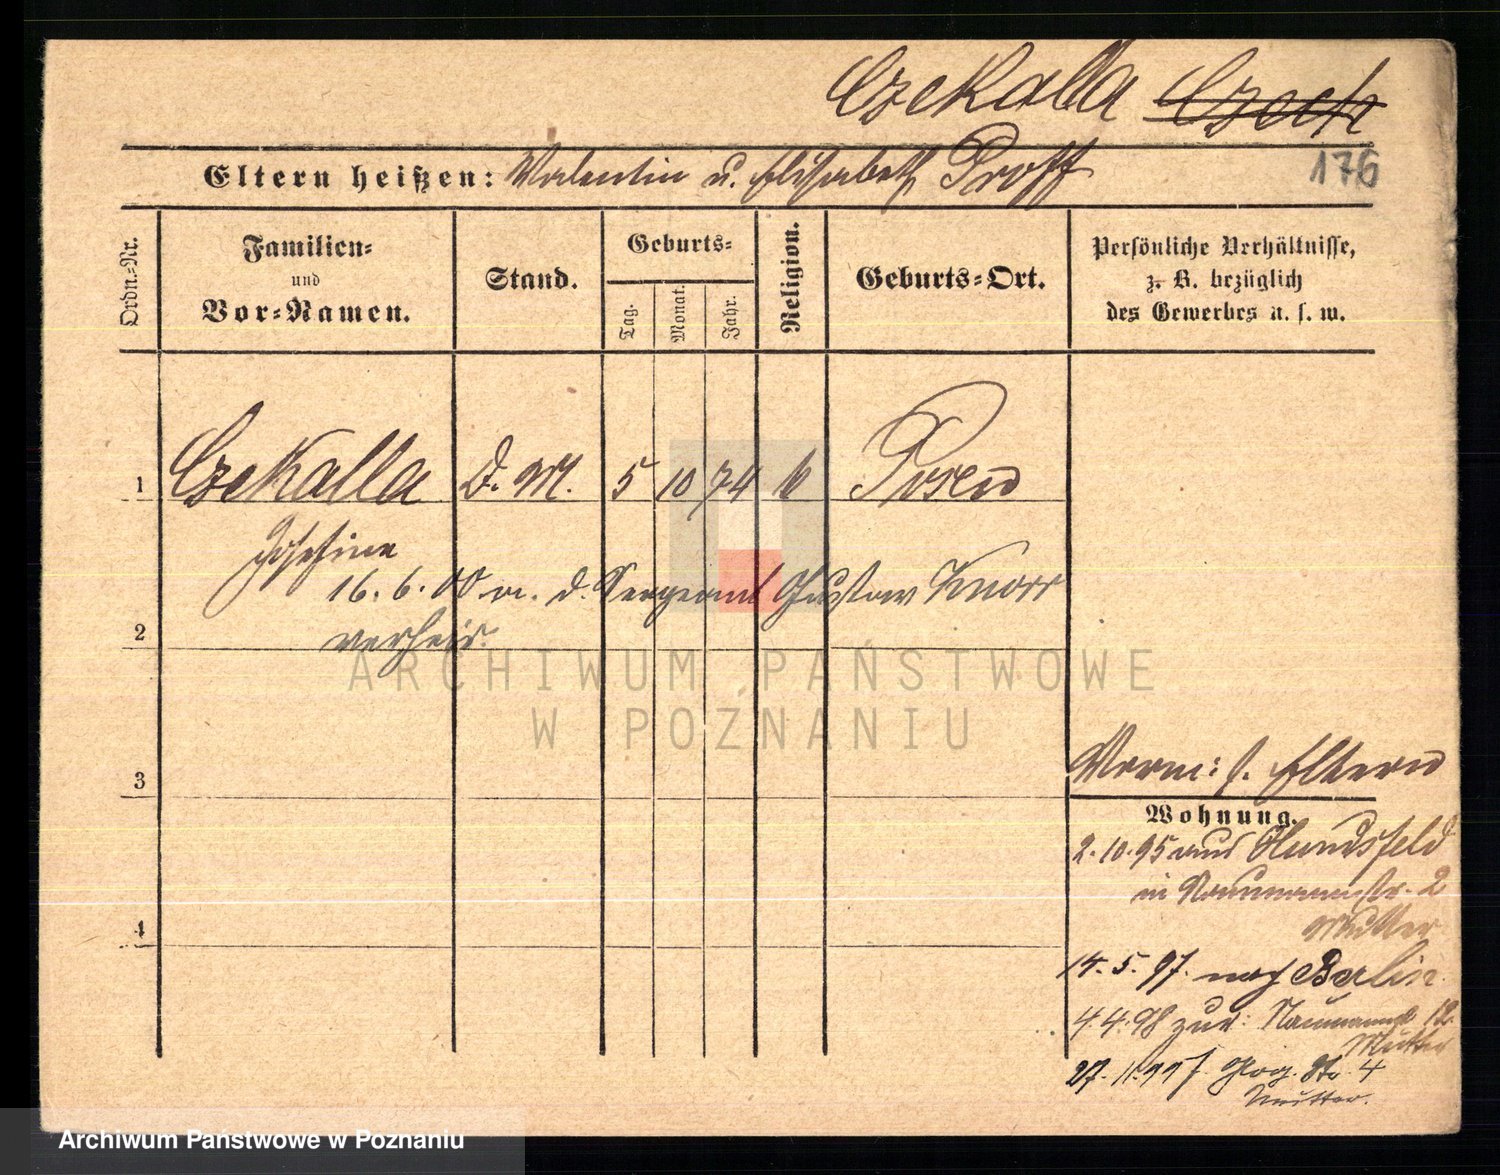 Czekalla Czech
Eltern heißen: Valentin u. Elisabeth Proff
176
Ordn.-Nr.
Familien-
und
Vor-Namen.
Stand.
Geburts-
Tag.
Monat.
Jahr.
Religion.
Geburts-Ort.
Persönliche Verhältnisse,
z. B. bezüglich
des Gewerbes u. s. w.
1 Czekalla D. M. 5 10 74 k Posen
Josefine
16. 6. 00 m. d. Sergeant Gustav Knorr
2 verheir.
3
4
Verm: s. Eltern
Wohnung.
2. 10. 95 aus Hundsfeld
in Naumannstr. 2
Mutter
14. 5. 97. nach Berlin
4. 4. 98 zur: Naumannst 12
Mutter
27. 11. 99 Glog. Str. 4
Mutter.
ARCHIWUM PAŃSTWOWE
W POZNANIU
Archiwum Państwowe w Poznaniu